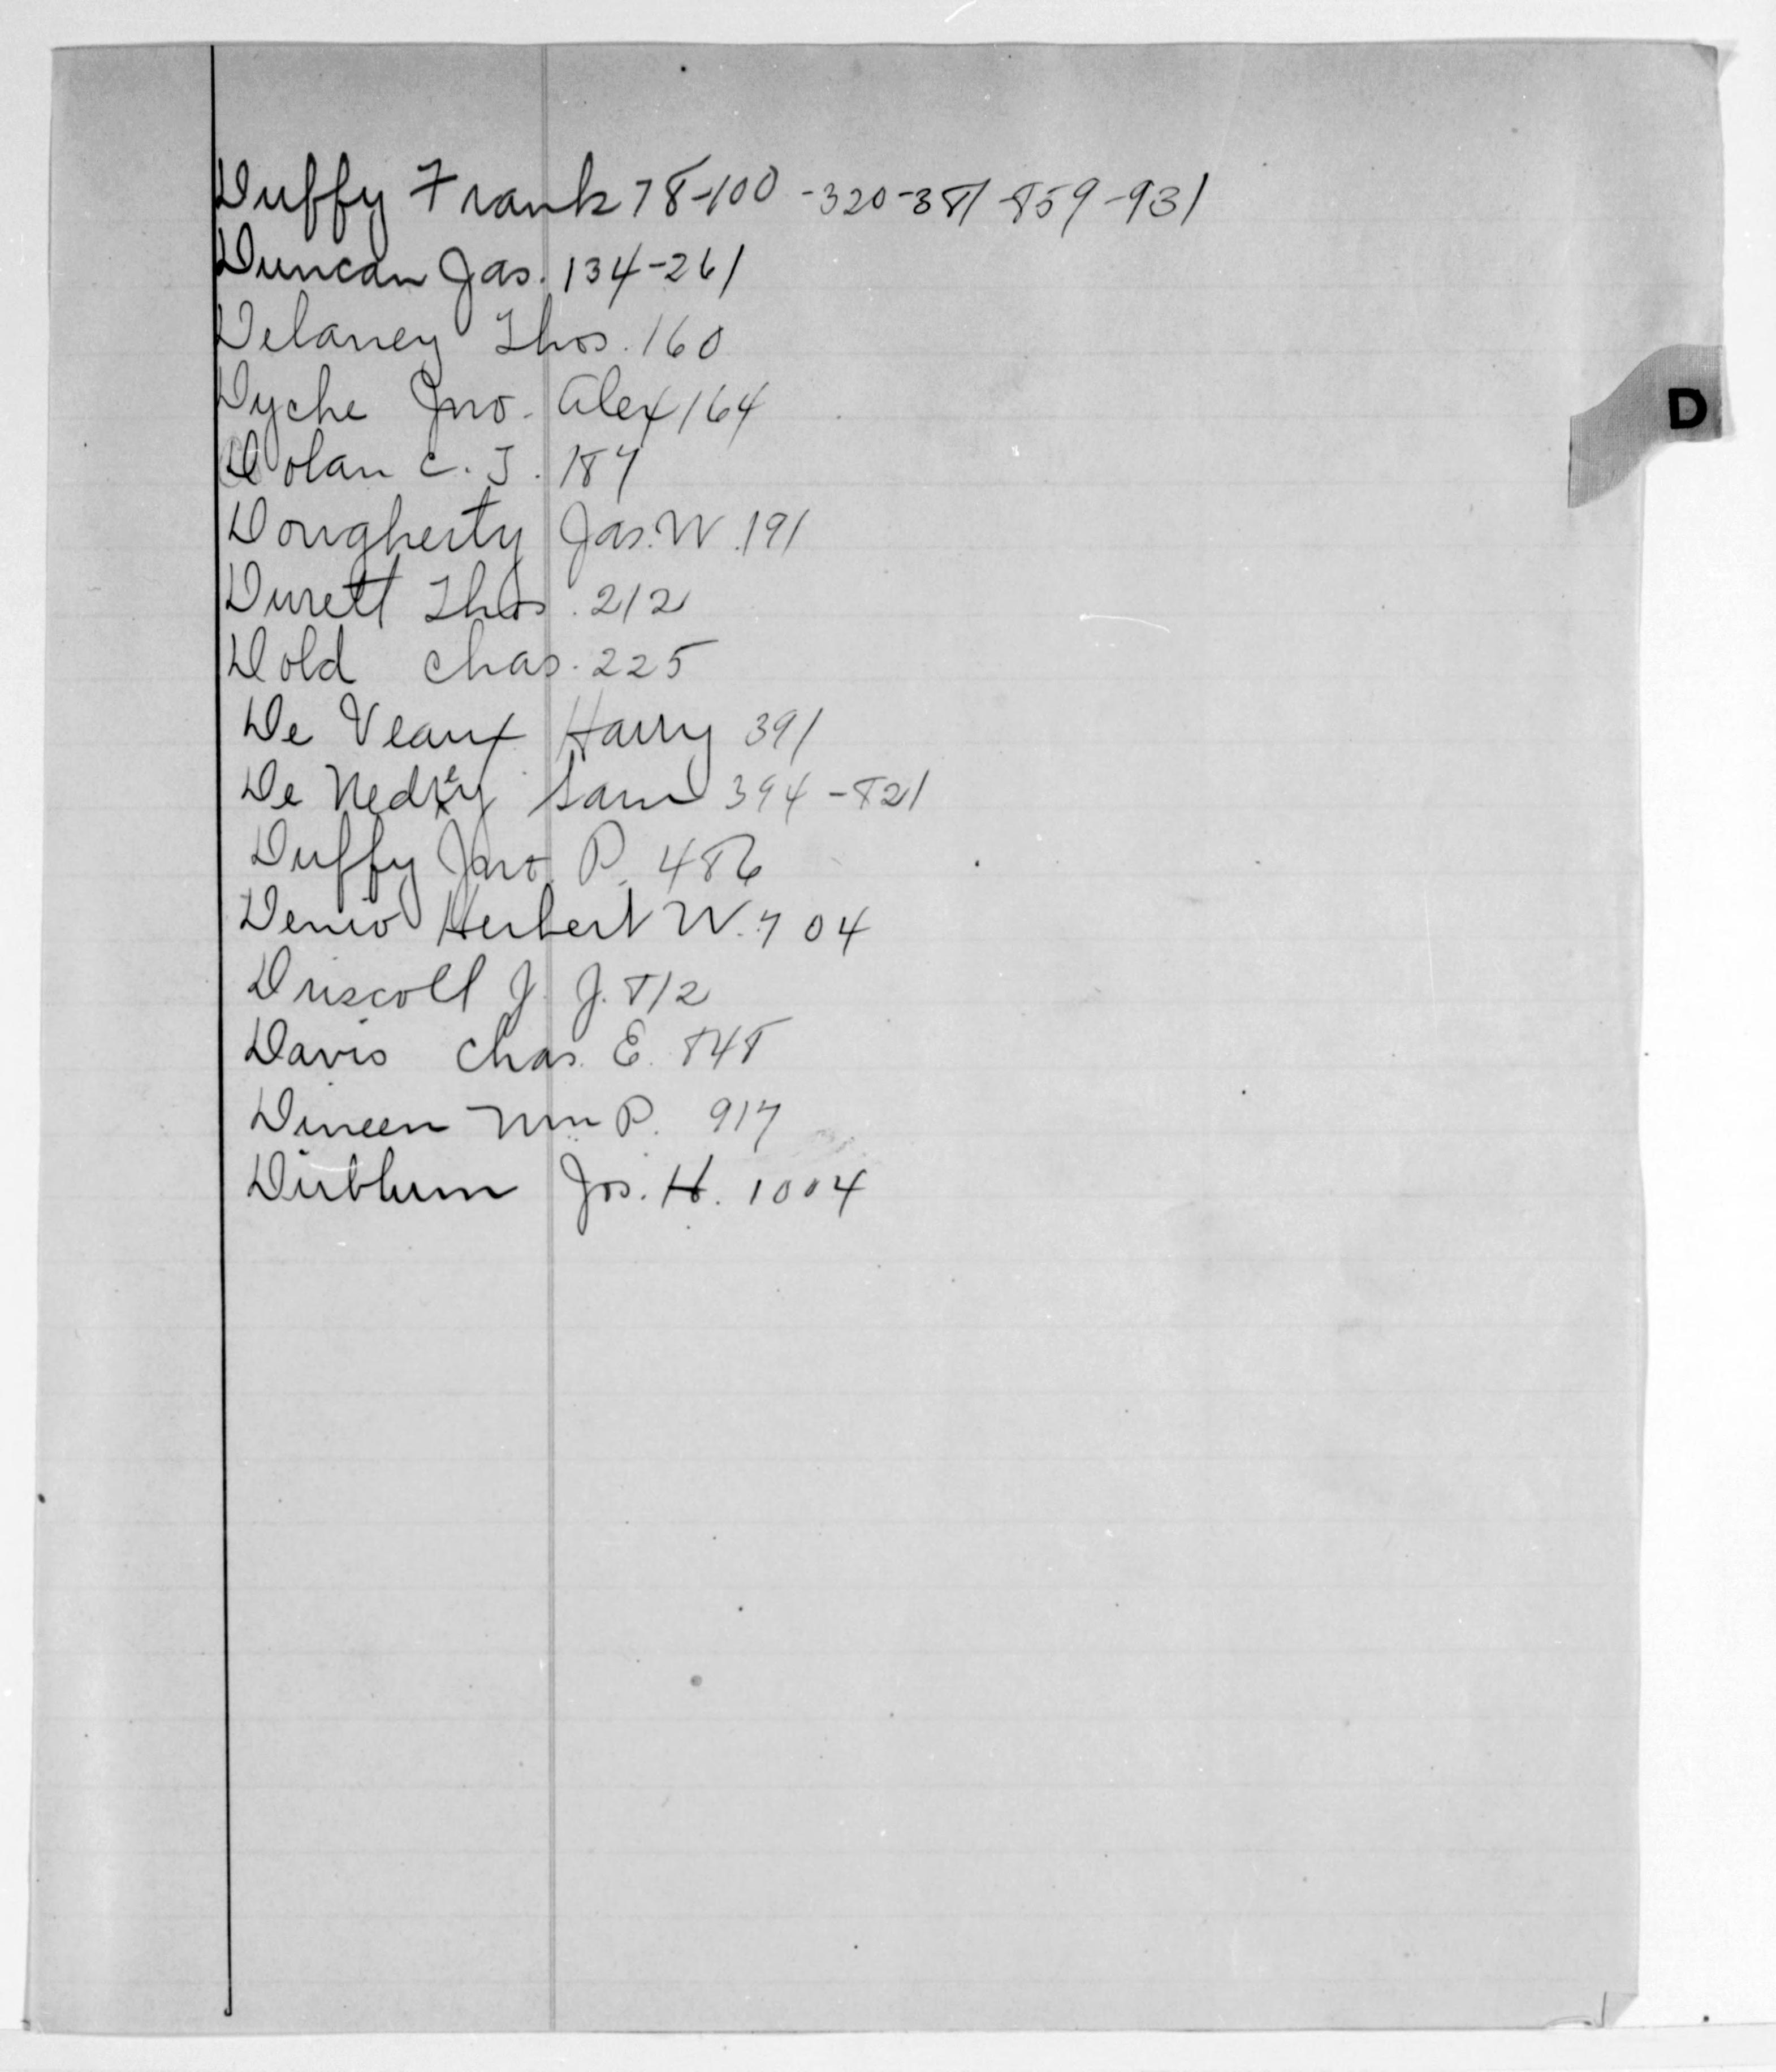 Duffy Frank 78-100-320-381-859-931
Duncan Jas. 134-261
Delaney Thos. 160
D
Dyche Jno. Alex 164
Dolan C. J. 187
Dougherty Jas. W. 191
Durett Thos. 212
Dold Chas. 225
De Veaux Harry 391
De Nedrey Sam 394-821
Duffy Jno. P. 486
Denio Herbert W. 704
Driscoll J. J. 812
Davis Chas. E. 848
Dineen Wm P. 917
Jos. H. 1004